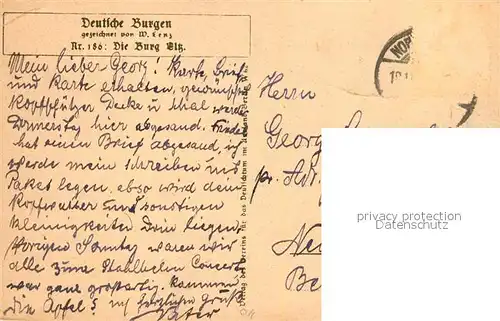 Deutsche Burgen
gezeichnet von W. Lenz
Nr. 186: Die Burg Eltz.
Mein lieber Georg! Karte, Brief
und Karte erhalten, gewünschte
Kopfschützer Decke u Shal werde
Donnerstag hier abgesand.
hat einen Brief abgesand, ich
werde mein schreiben und
Paket legen, ebso wird dein
und sonstigen
Kleinigkeiten drin liegen.
Vorigen Sonntag waren wir
alle zum Stahlhelm Concert
war ganz großartig. Kommen
die Äpfel? mit herzlichen Gruß
Vater
Verlag des Vereins für das Deutschtum im Ausland
Herrn
Georg
pr. Adr.
privacy protection
Datenschutz